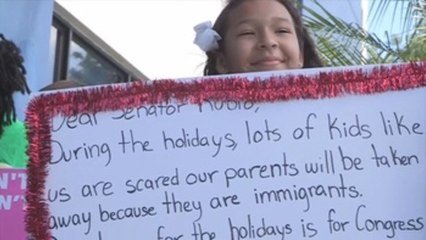 Dear Senator Rubio,
During the holidays, lots of Kids like
us are scared our parents will be taken
away because they are immigrants.
for the holidays is for Congress
N'T
N'T